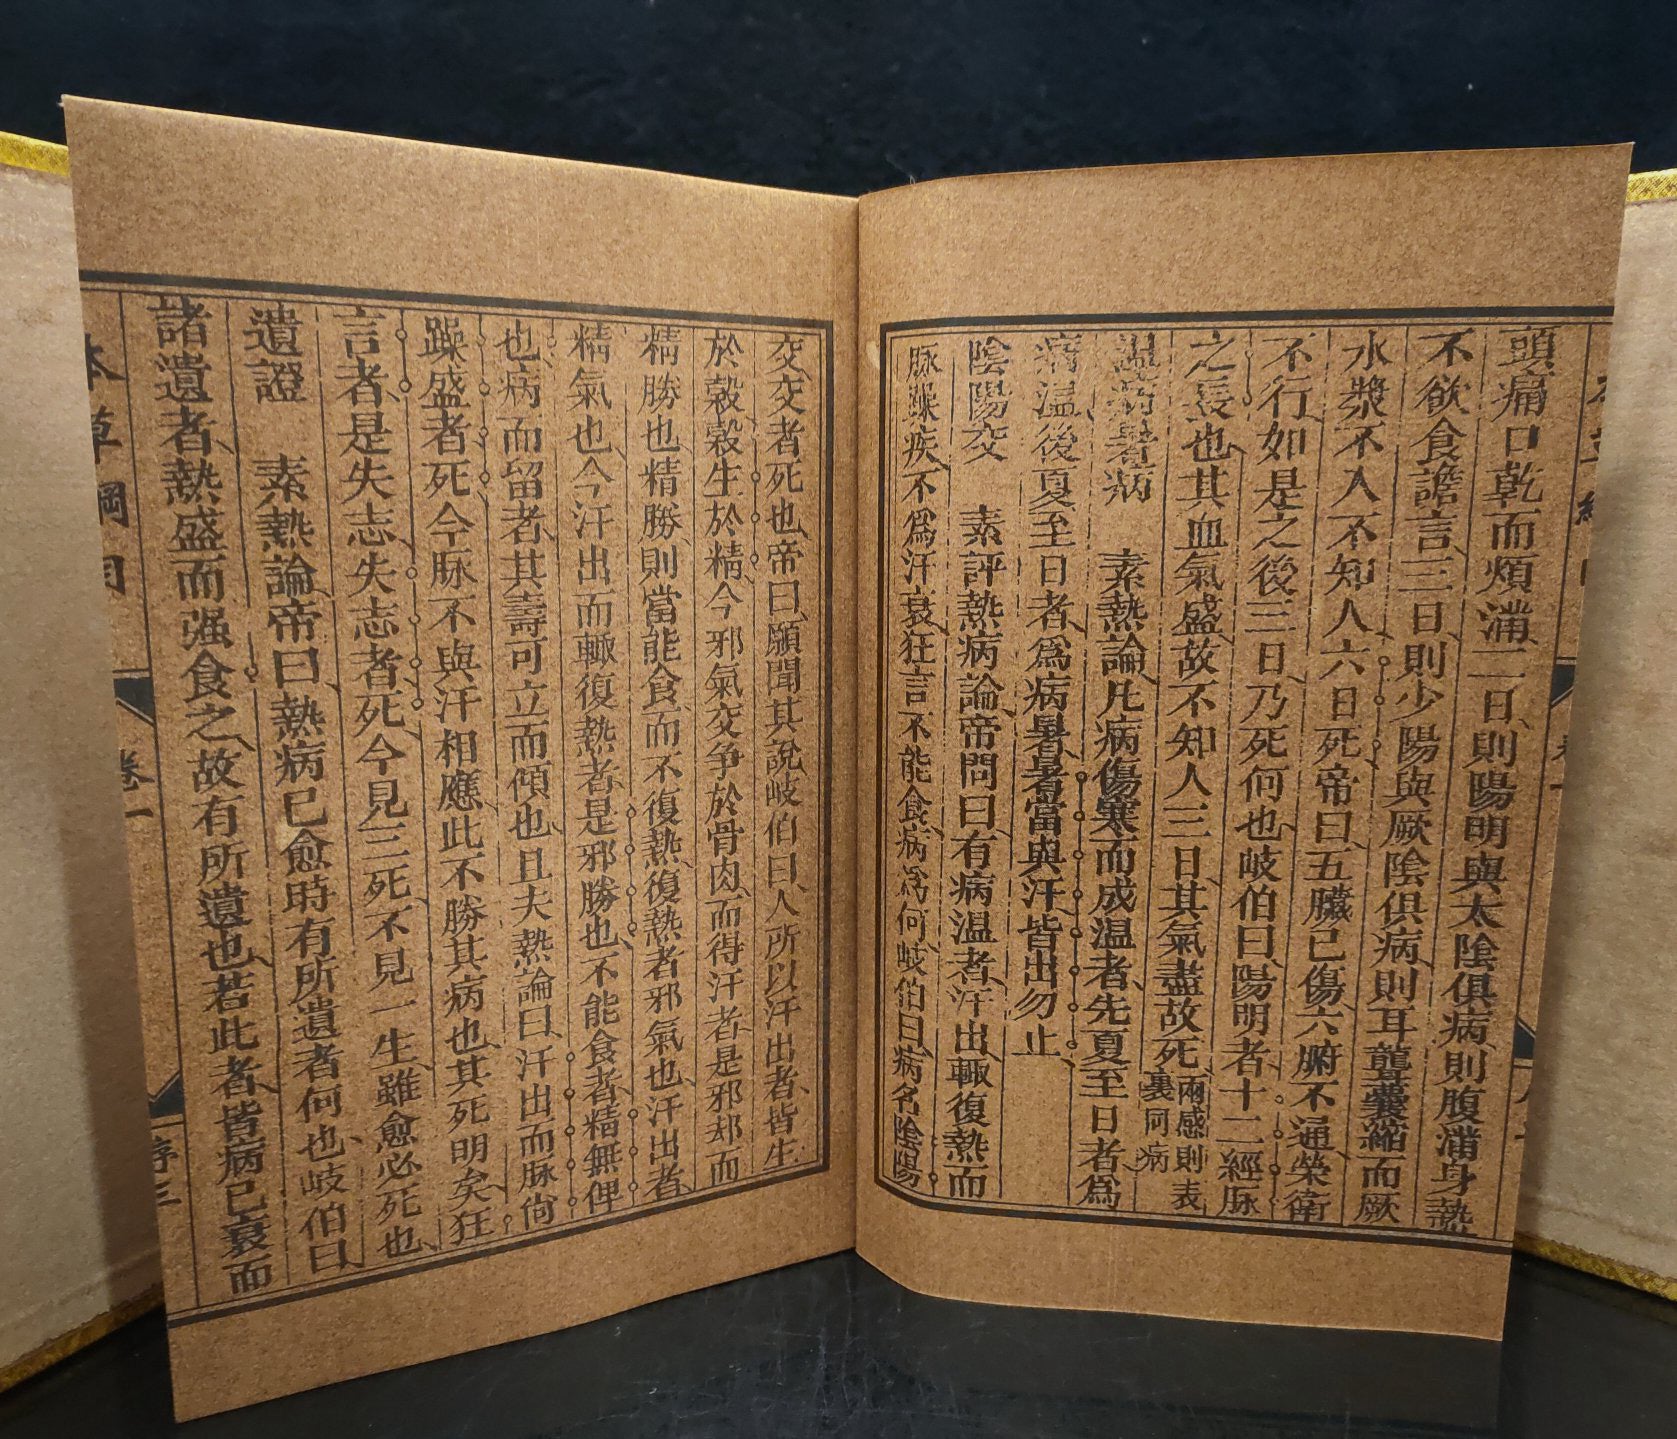 頭痛口乾而煩滿二日則陽明與太陰俱病則腹滿身熱
不欲食譫言三日則少陽與厥陰俱病則耳聾囊縮而厥
水漿不入不知人六日死帝曰五臟已傷六腑不通榮衛
不行如是之後三日乃死何也岐伯曰陽明者十二經脉
之長也其血氣盛故不知人三日其氣盡故死兩感則表
裏同病
溫病暑病 素熱論凡病傷寒而成温者先夏至日者爲
病温後夏至日者爲病暑暑當與汗皆出勿止
陰陽交 素評熱病論帝問曰有病温者汗出輙復熱而
脉躁疾不爲汗衰狂言不能食病爲何岐伯曰病名陰陽
交交者死也帝曰願聞其說岐伯曰人所以汗出者皆生
於穀穀生於精今邪氣交爭於骨肉而得汗者是邪却而
精勝也精勝則當能食而不復熱復熱者邪氣也汗出者
精氣也今汗出而輙復熱者是邪勝也不能食者精無俾
也病而留者其壽可立而傾也且夫熱論曰汗出而脉尙
躁盛者死今脉不與汗相應此不勝其病也其死明矣狂
言者是失志失志者死今見三死不見一生雖愈必死也
遺證 素熱論帝曰熱病已愈時有所遺者何也岐伯曰
諸遺者熱盛而强食之故有所遺也若此者皆病已衰而
本草綱目
卷一
序三